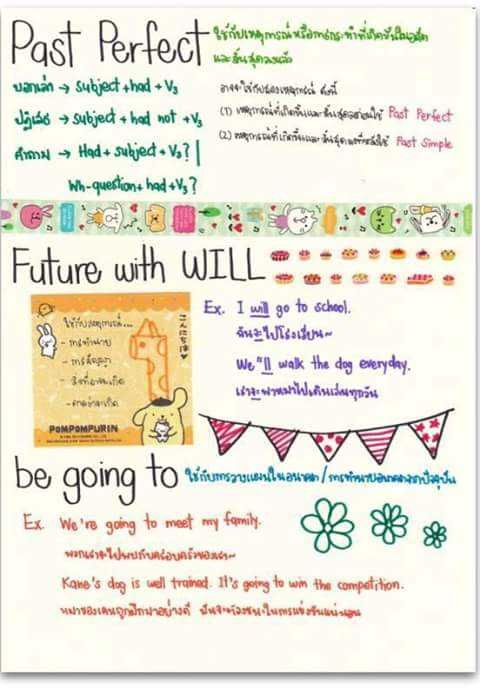 Past Perfect ใช้กับเหตุการณ์หรือการกระทำที่เกิดขึ้นในอดีต
และสิ้นสุดลงแล้ว
บอกเล่า → subject + had + V₃
ปฏิเสธ → subject + had not + V₃
คำถาม → Had + subject + V₃? |
Wh-question + had + V₃?
อาจจะใช้กับสองเหตุการณ์ ดังนี้
(1) เหตุการณ์ที่เกิดขึ้นและสิ้นสุดลงก่อนใช้ Past Perfect
(2) เหตุการณ์ที่เกิดขึ้นและสิ้นสุดลงทีหลังใช้ Past Simple
Future with WILL
ใช้กับเหตุการณ์...
- การทำนาย
- การสัญญา
- สิ่งที่อาจจะเกิด
- คาดว่าจะเกิด
こんにちは
POMPOMPURIN
Ex. I will go to school.
ฉันจะไปโรงเรียน~
We'll walk the dog everyday.
เราจะพาหมาไปเดินเล่นทุกวัน
be going to ใช้กับการวางแผนในอนาคต / การทำนายอนาคตจากปัจจุบัน
Ex. We're going to meet my family.
พวกเราจะไปพบกับครอบครัวของเรา~
Kane's dog is well trained. It's going to win the competition.
หมาของเคนถูกฝึกมาอย่างดี มันจะต้องชนะในการแข่งขันแน่นอน